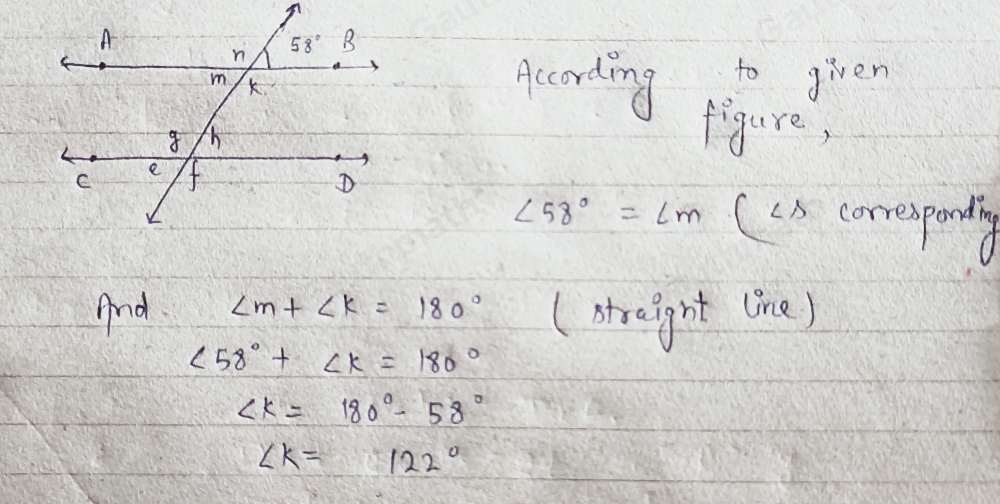 A
n
58°
B
m
k
g
h
C
e
f
D
According to given
figure,
∠58° = ∠m ( ∠s corresponding
And. ∠m + ∠k = 180° ( straight line)
∠58° + ∠k = 180°
∠k = 180° - 58°
∠k = 122°